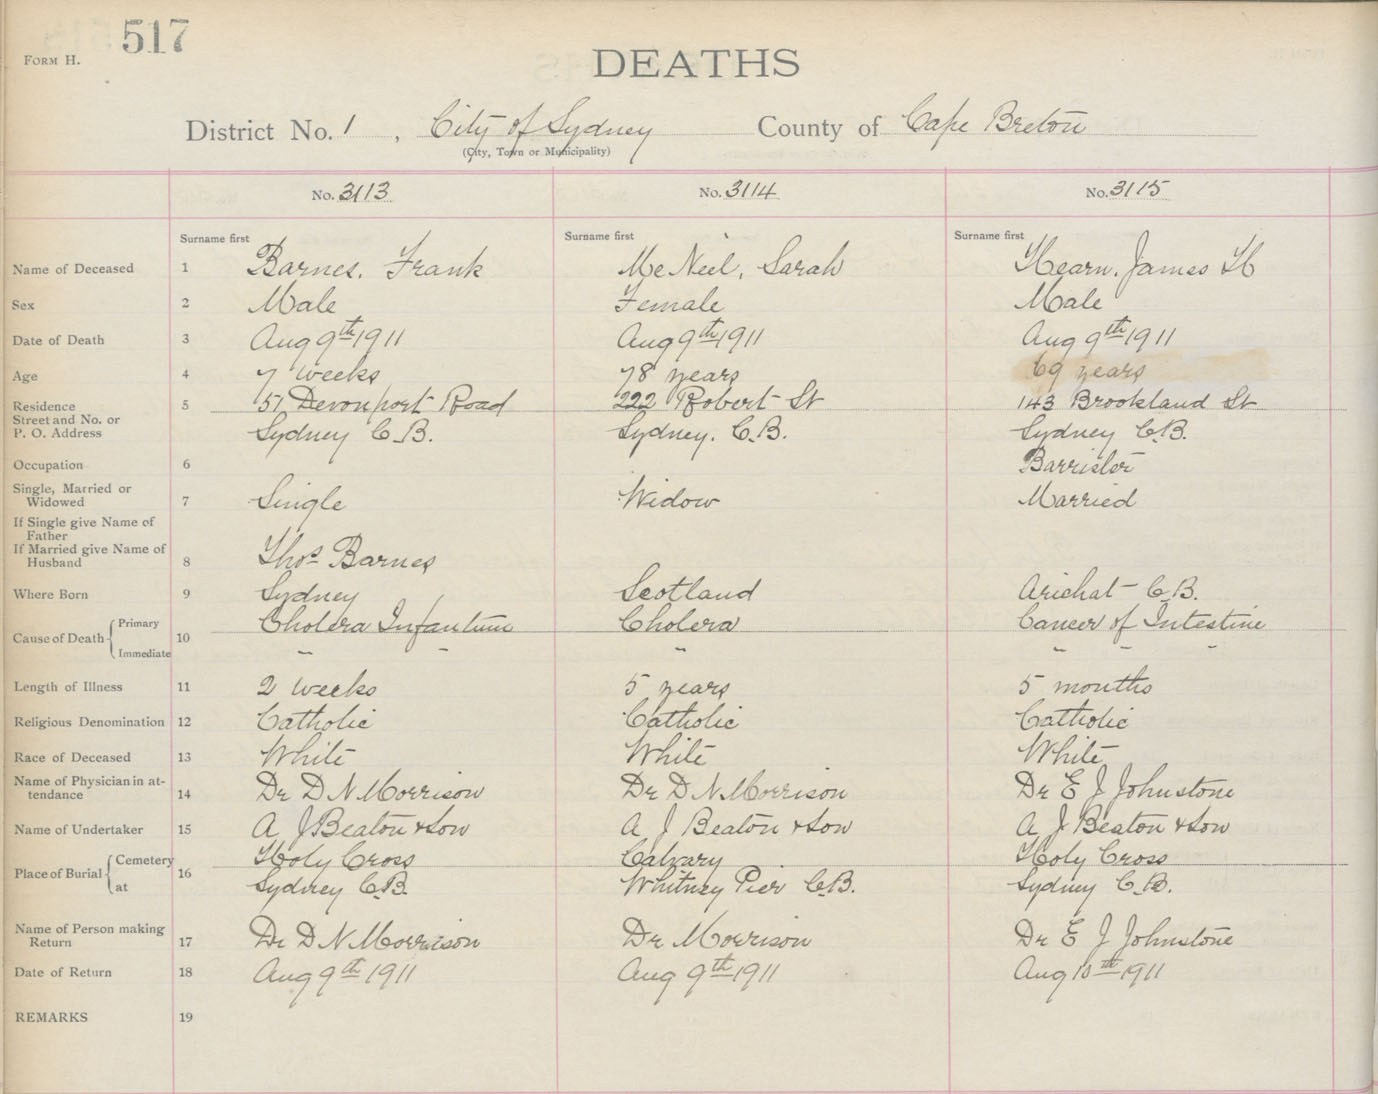 517
FORM H.
DEATHS
District No. 1, City of Sydney County of Cape Breton
(City, Town or Municipality)
No. 3113 No. 3114 No. 3115
Surname first Surname first Surname first
Name of Deceased 1 Barnes, Frank McNeil, Sarah Hearn, James H
Sex 2 Male Female Male
Date of Death 3 Aug 9th 1911 Aug 9th 1911 Aug 9th 1911
Age 4 7 weeks 78 years 69 years
Residence 5 51 Devonport Road 222 Robert St 143 Brookland St
Street and No. or
P. O. Address Sydney C.B. Sydney. C.B. Sydney C.B.
Occupation 6 Barrister
Single, Married or
Widowed 7 Single Widow Married
If Single give Name of
Father
If Married give Name of
Husband 8 Thos Barnes
Where Born 9 Sydney Scotland Arichat - C.B.
Cause of Death Primary 10 Cholera Infantum Cholera Cancer of Intestine
Immediate " " " " " "
Length of Illness 11 2 weeks 5 years 5 months
Religious Denomination 12 Catholic Catholic Catholic
Race of Deceased 13 White White White
Name of Physician in at-
tendance 14 Dr D N Morrison Dr D N Morrison Dr E J Johnstone
Name of Undertaker 15 A J Beaton & Son A J Beaton & Son A J Beaton & Son
Place of Burial Cemetery 16 Holy Cross Calvary Holy Cross
at Sydney C.B. Whitney Pier C.B. Sydney C.B.
Name of Person making
Return 17 Dr D N Morrison Dr Morrison Dr E J Johnstone
Date of Return 18 Aug 9th 1911 Aug 9th 1911 Aug 10th 1911
REMARKS 19